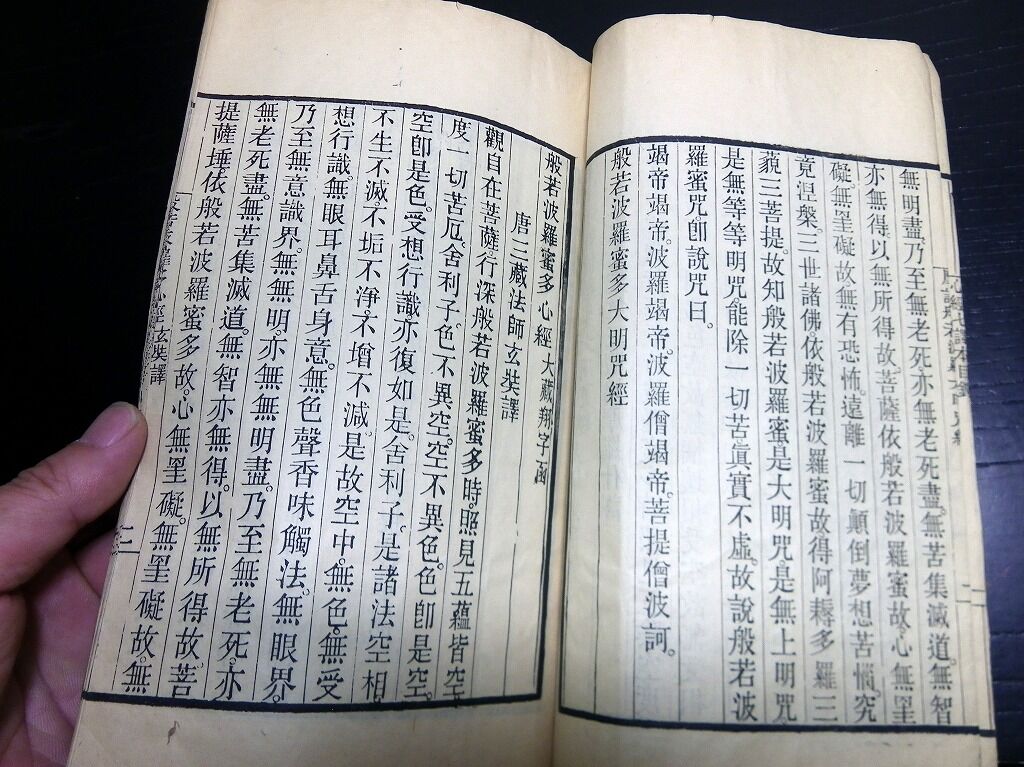 無明盡乃至無老死亦無老死盡。無苦集滅道。無智
亦無得。以無所得故。菩薩依般若波羅蜜故。心無罣
礙。無罣礙故。無有恐怖。遠離一切顛倒夢想苦惱。究
竟涅槃。三世諸佛。依般若波羅蜜故。得阿耨多羅三
藐三菩提。故知般若波羅蜜是大明咒。是無上明咒。
是無等等明咒。能除一切苦眞實不虛。故說般若波
羅蜜咒。卽說咒曰。
竭帝竭帝。波羅竭帝。波羅僧竭帝。菩提僧波訶。
般若波羅蜜多大明咒經
二
般若波羅蜜多心經 大藏翔字函
唐三藏法師玄奘譯
觀自在菩薩。行深般若波羅蜜多時。照見五蘊皆空
度一切苦厄。舍利子。色不異空。空不異色。色卽是空。
空卽是色。受想行識。亦復如是。舍利子。是諸法空相
不生不滅。不垢不淨。不增不減。是故空中。無色。無受
想行識。無眼耳鼻舌身意。無色聲香味觸法。無眼界。
乃至無意識界。無無明。亦無無明盡。乃至無老死。亦
無老死盡。無苦集滅道。無智亦無得。以無所得故。菩
提薩埵。依般若波羅蜜多故。心無罣礙。無罣礙故。無
心經 玄奘譯
三